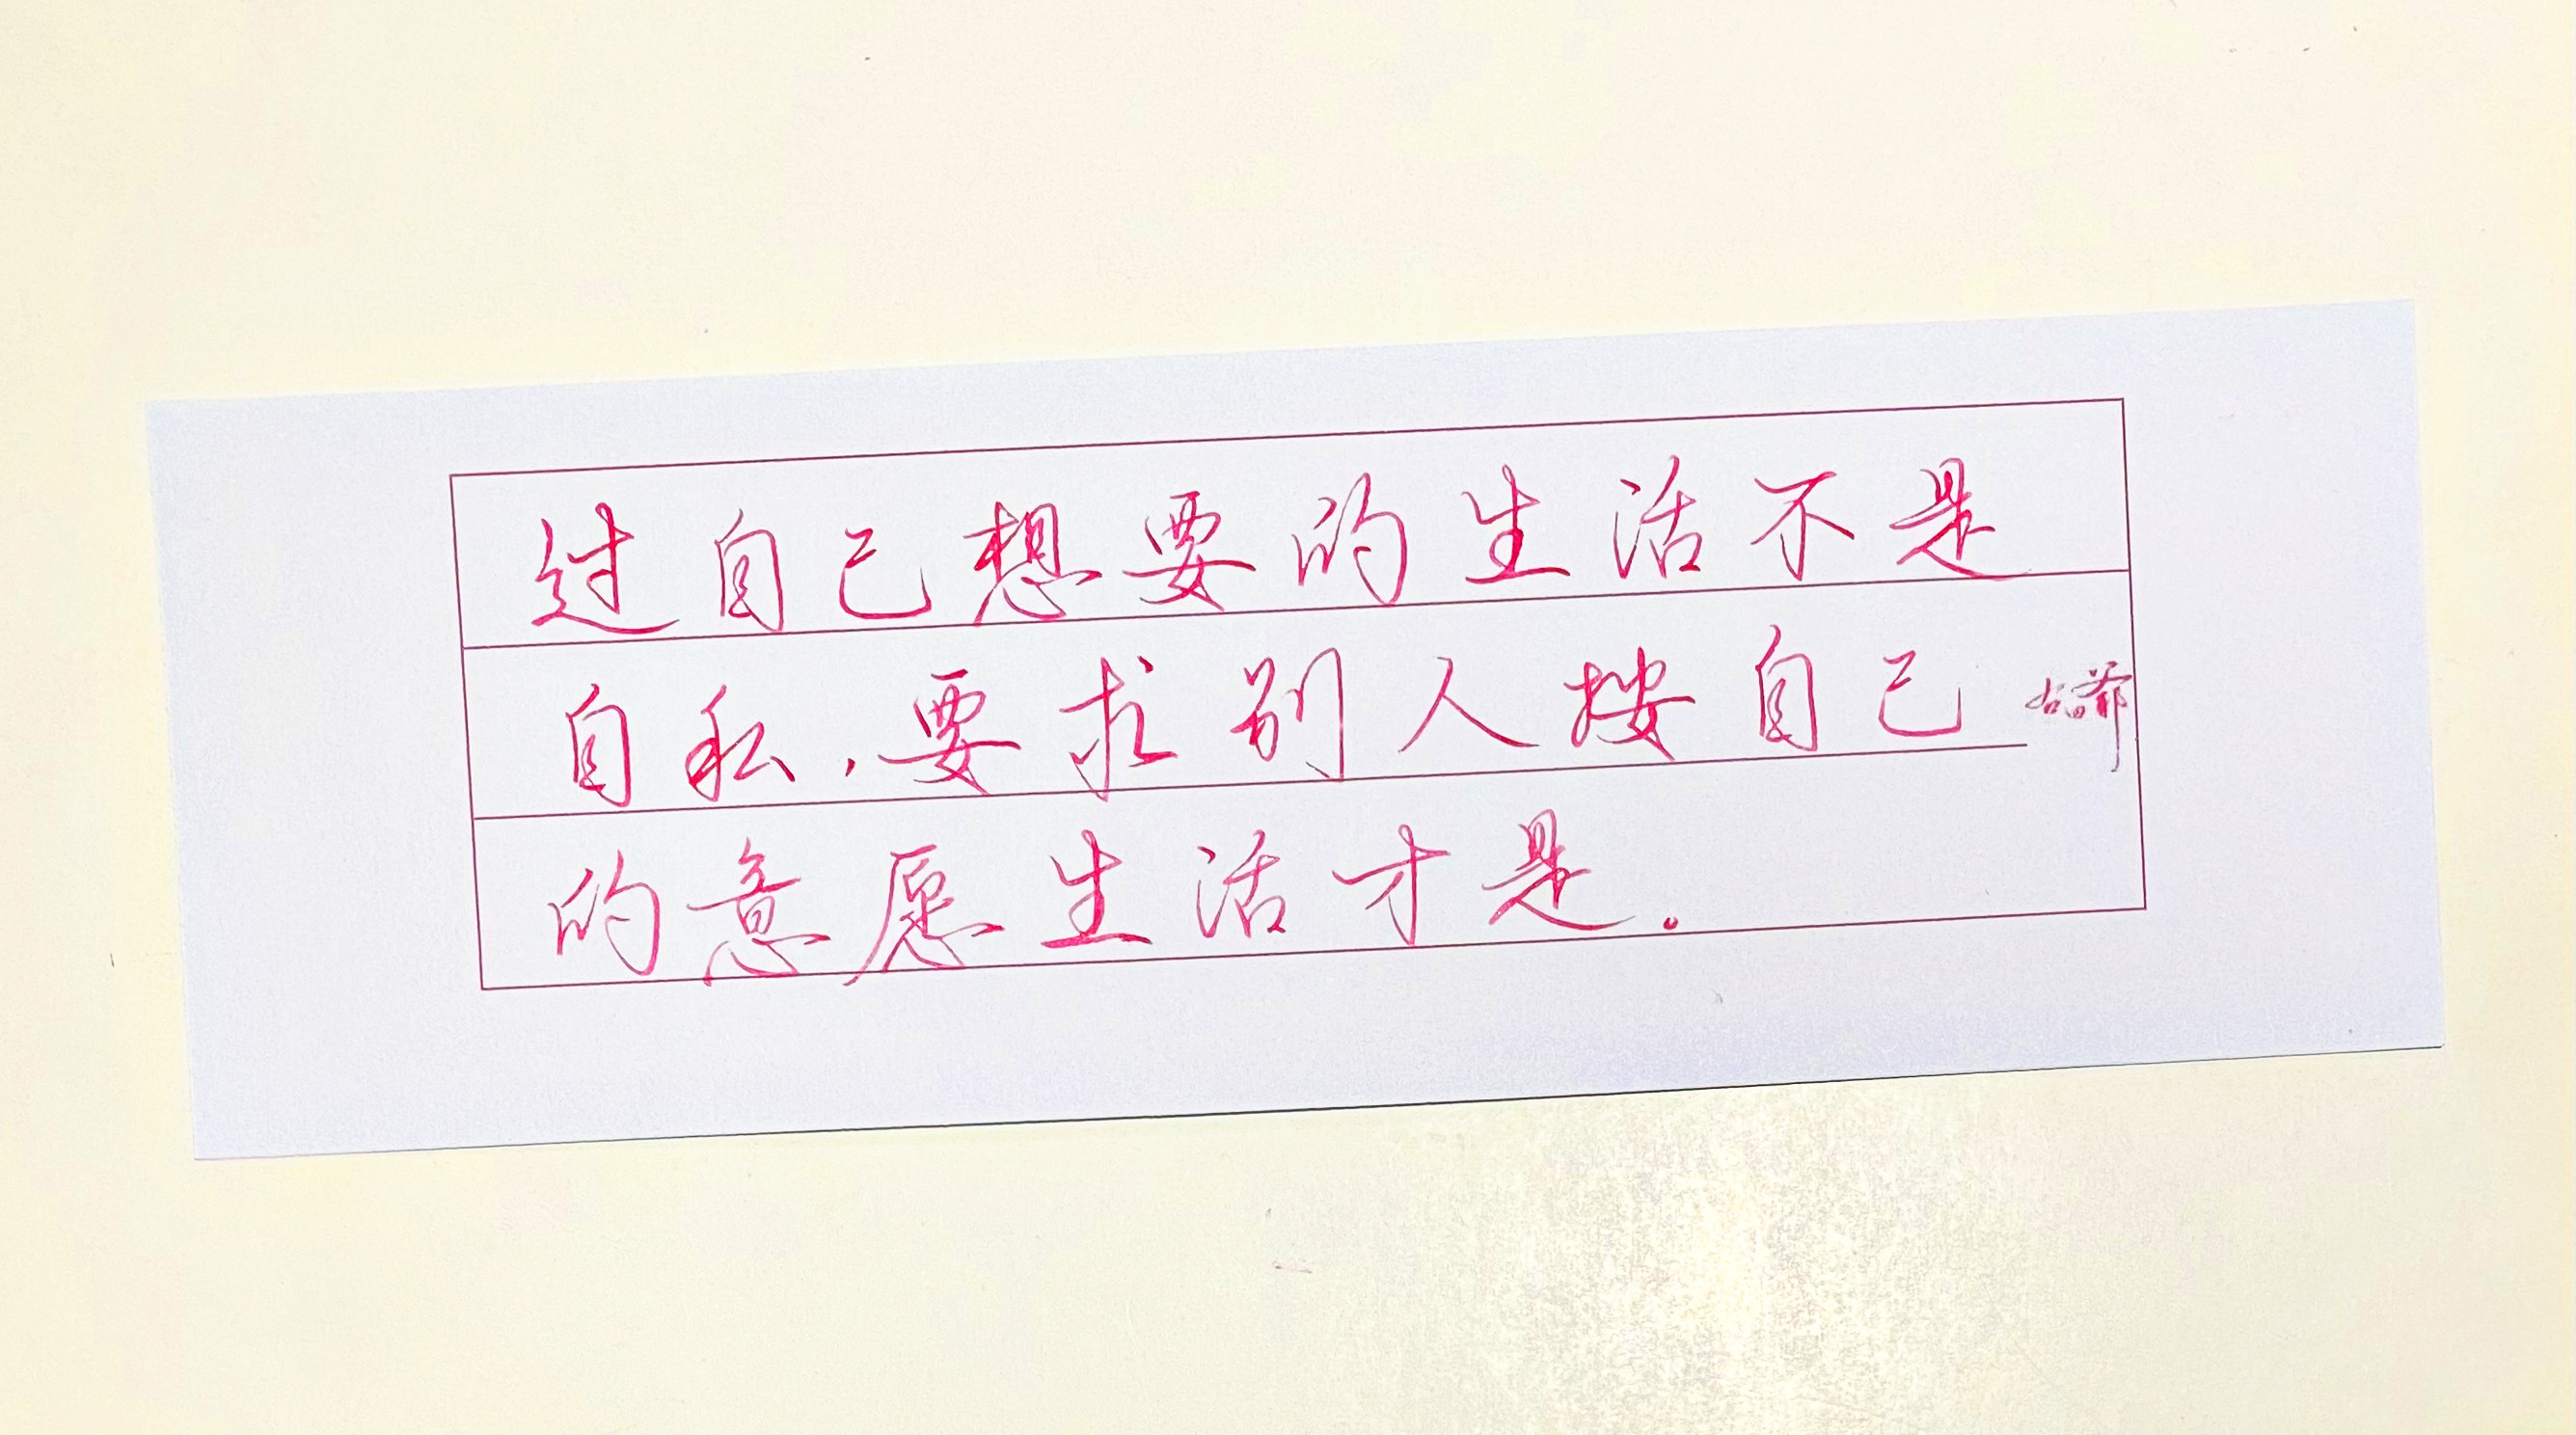 过自己想要的生活不是
自私,要求别人按自己
的意愿生活才是。